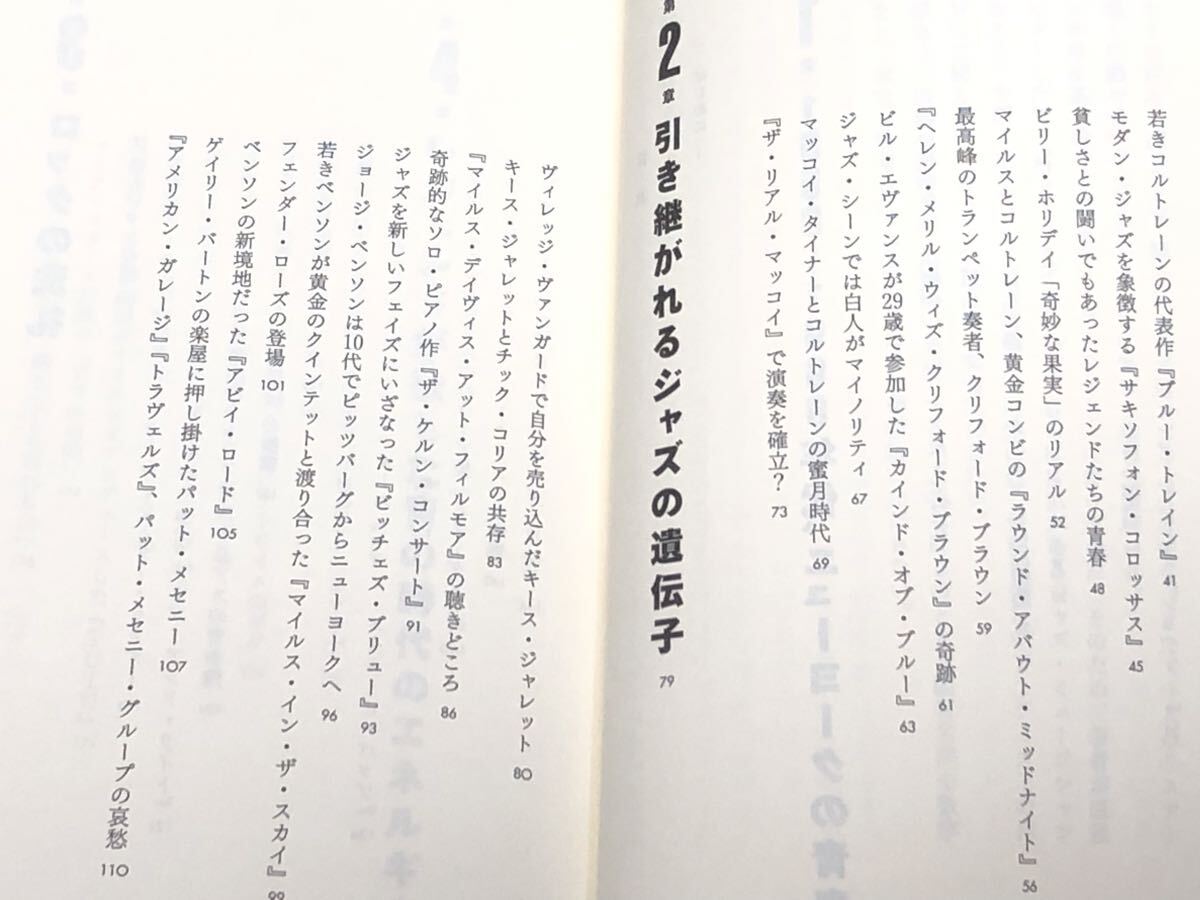 若きコルトレーンの代表作『ブルー・トレイン』 41
モダン・ジャズを象徴する『サキソフォン・コロッサス』 45
貧しさとの闘いでもあったレジェンドたちの青春 48
ビリー・ホリデイ「奇妙な果実」のリアル 52
マイルスとコルトレーン、黄金コンビの『ラウンド・アバウト・ミッドナイト』 56
最高峰のトランペット奏者、クリフォード・ブラウン 59
『ヘレン・メリル・ウィズ・クリフォード・ブラウン』の奇跡 61
ビル・エヴァンスが29歳で参加した『カインド・オブ・ブルー』 63
ジャズ・シーンでは白人がマイノリティ 67
マッコイ・タイナーとコルトレーンの蜜月時代 69
『ザ・リアル・マッコイ』で演奏を確立? 73
第2章 引き継がれるジャズの遺伝子 79
ヴィレッジ・ヴァンガードで自分を売り込んだキース・ジャレット 80
キース・ジャレットとチック・コリアの共存 83
『マイルス・デイヴィス・アット・フィルモア』の聴きどころ 86
奇跡的なソロ・ピアノ作『ザ・ケルン・コンサート』 91
ジャズを新しいフェイズにいざなった『ビッチェズ・ブリュー』 93
ジョージ・ベンソンは10代でピッツバーグからニューヨークへ 96
若きベンソンが黄金のクインテットと渡り合った『マイルス・イン・ザ・スカイ』 99
フェンダー・ローズの登場 101
ベンソンの新境地だった『アビイ・ロード』 105
ゲイリー・バートンの楽屋に押し掛けたパット・メセニー 107
『アメリカン・ガレージ』『トラヴェルズ』、パット・メセニー・グループの哀愁 110